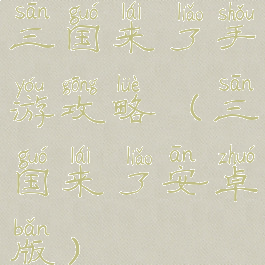 sān guó lái liǎo shǒu
三国来了手
yóu gōng lüè sān
游攻略（三
guó lái liǎo ān zhuó
国来了安卓
bǎn
版）